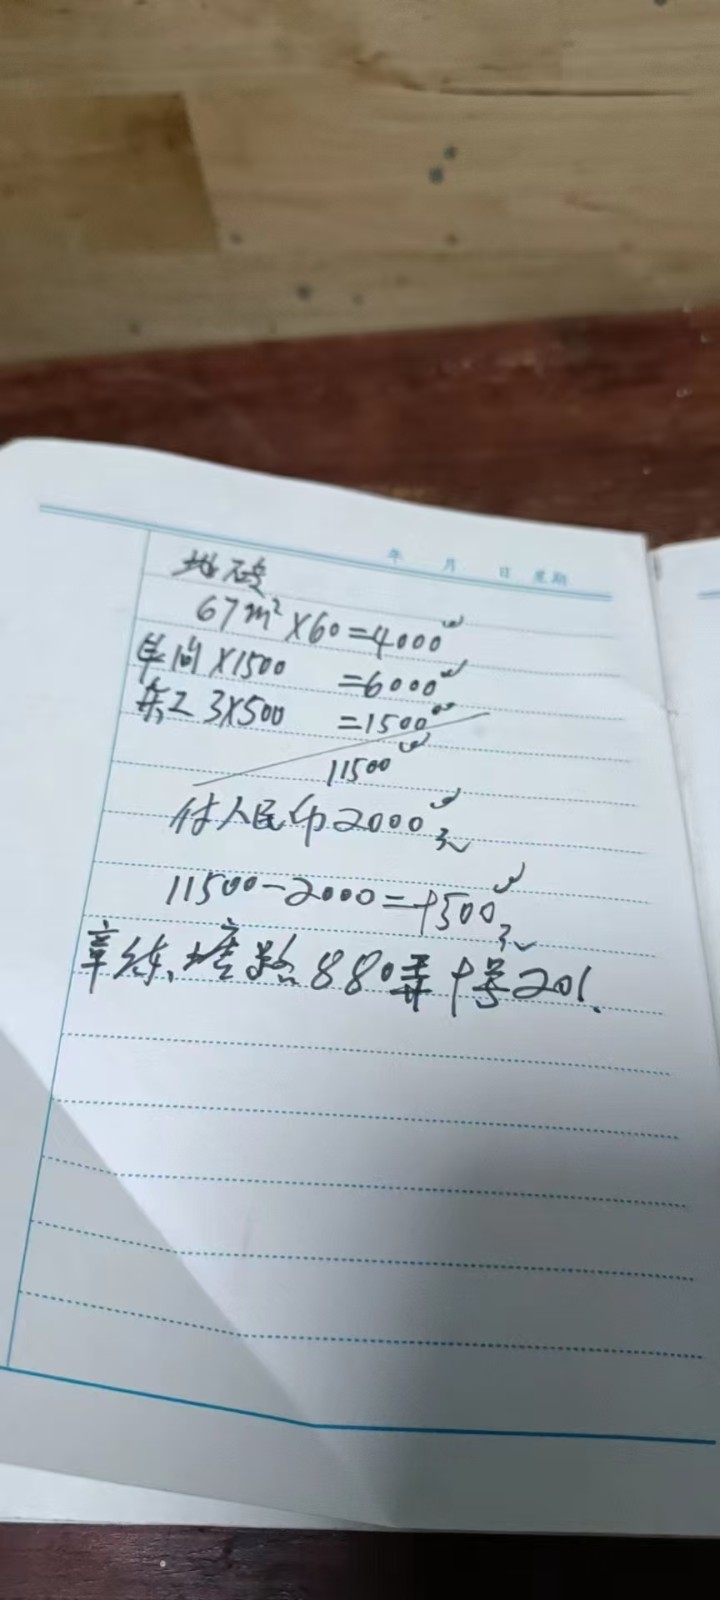 年 月 日 星期
地砖
67m²×60=4000
单间×1500 =6000
杂工 3×500 =1500
11500
付人民币2000元
11500-2000=9500元
章练塘路880弄十号201.